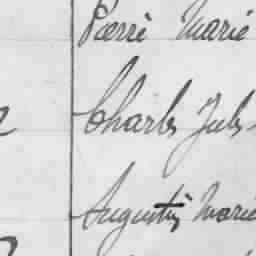 Pierre Marie
Charles Jules
Augustin Marie